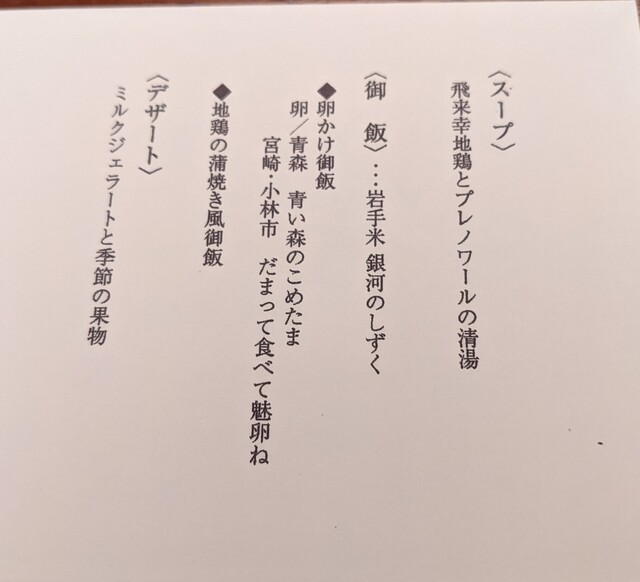 〈スープ〉
飛来幸地鶏とプレノワールの清湯
〈御　飯〉…岩手米 銀河のしずく
◆卵かけ御飯
卵／青森　青い森のこめたま
宮崎・小林市　だまって食べて魅卵ね
◆地鶏の蒲焼き風御飯
〈デザート〉
ミルクジェラートと季節の果物